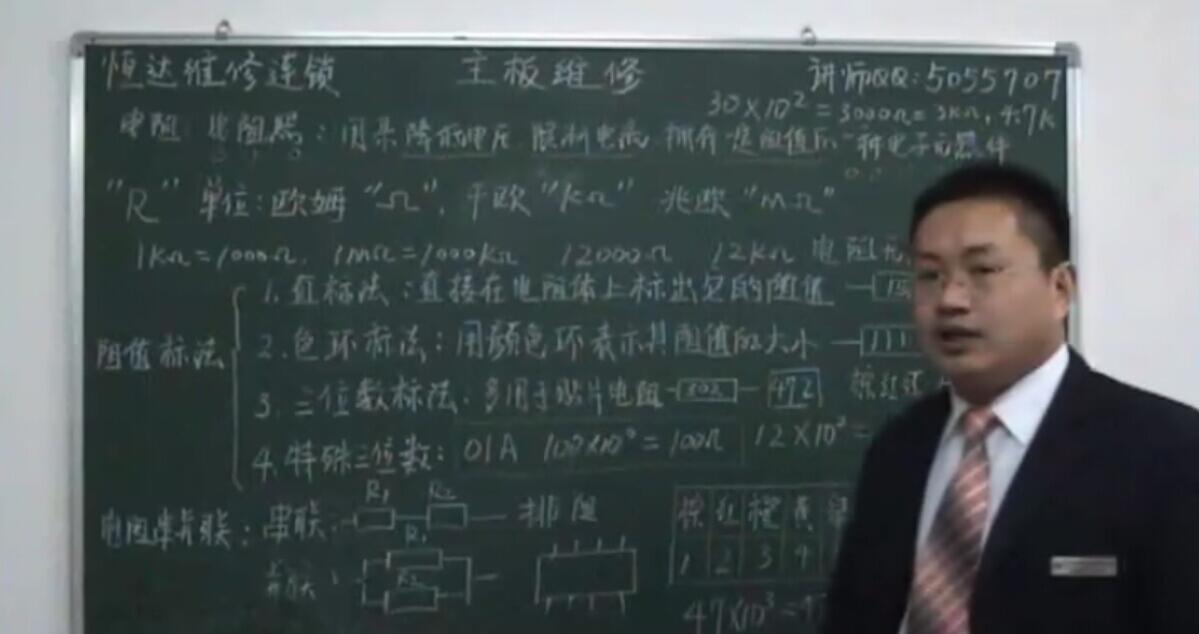 恒达维修连锁 主板维修 讲师QQ:5055707
30×10² = 3000Ω = 3KΩ, 4.7K
电阻 电阻器:用来降低电压 限制电流 拥有一定阻值的一种电子元器件
"R" 单位:欧姆"Ω", 千欧"KΩ" 兆欧"MΩ"
1KΩ=1000Ω. 1MΩ=1000KΩ 12000Ω 12KΩ 电阻
阻值标法
1.直标法:直接在电阻体上标出它的阻值
2.色环标法:用颜色环表示其阻值的大小
3.三位数标法.多用于贴片电阻 302 472
4.特殊三位数: 01A 100×10⁰=100Ω 12×10³=
电阻串并联:串联: R1 R2 排阻
并联: R1 R2
棕 红 橙 黄
1 2 3 4
47×10³=47